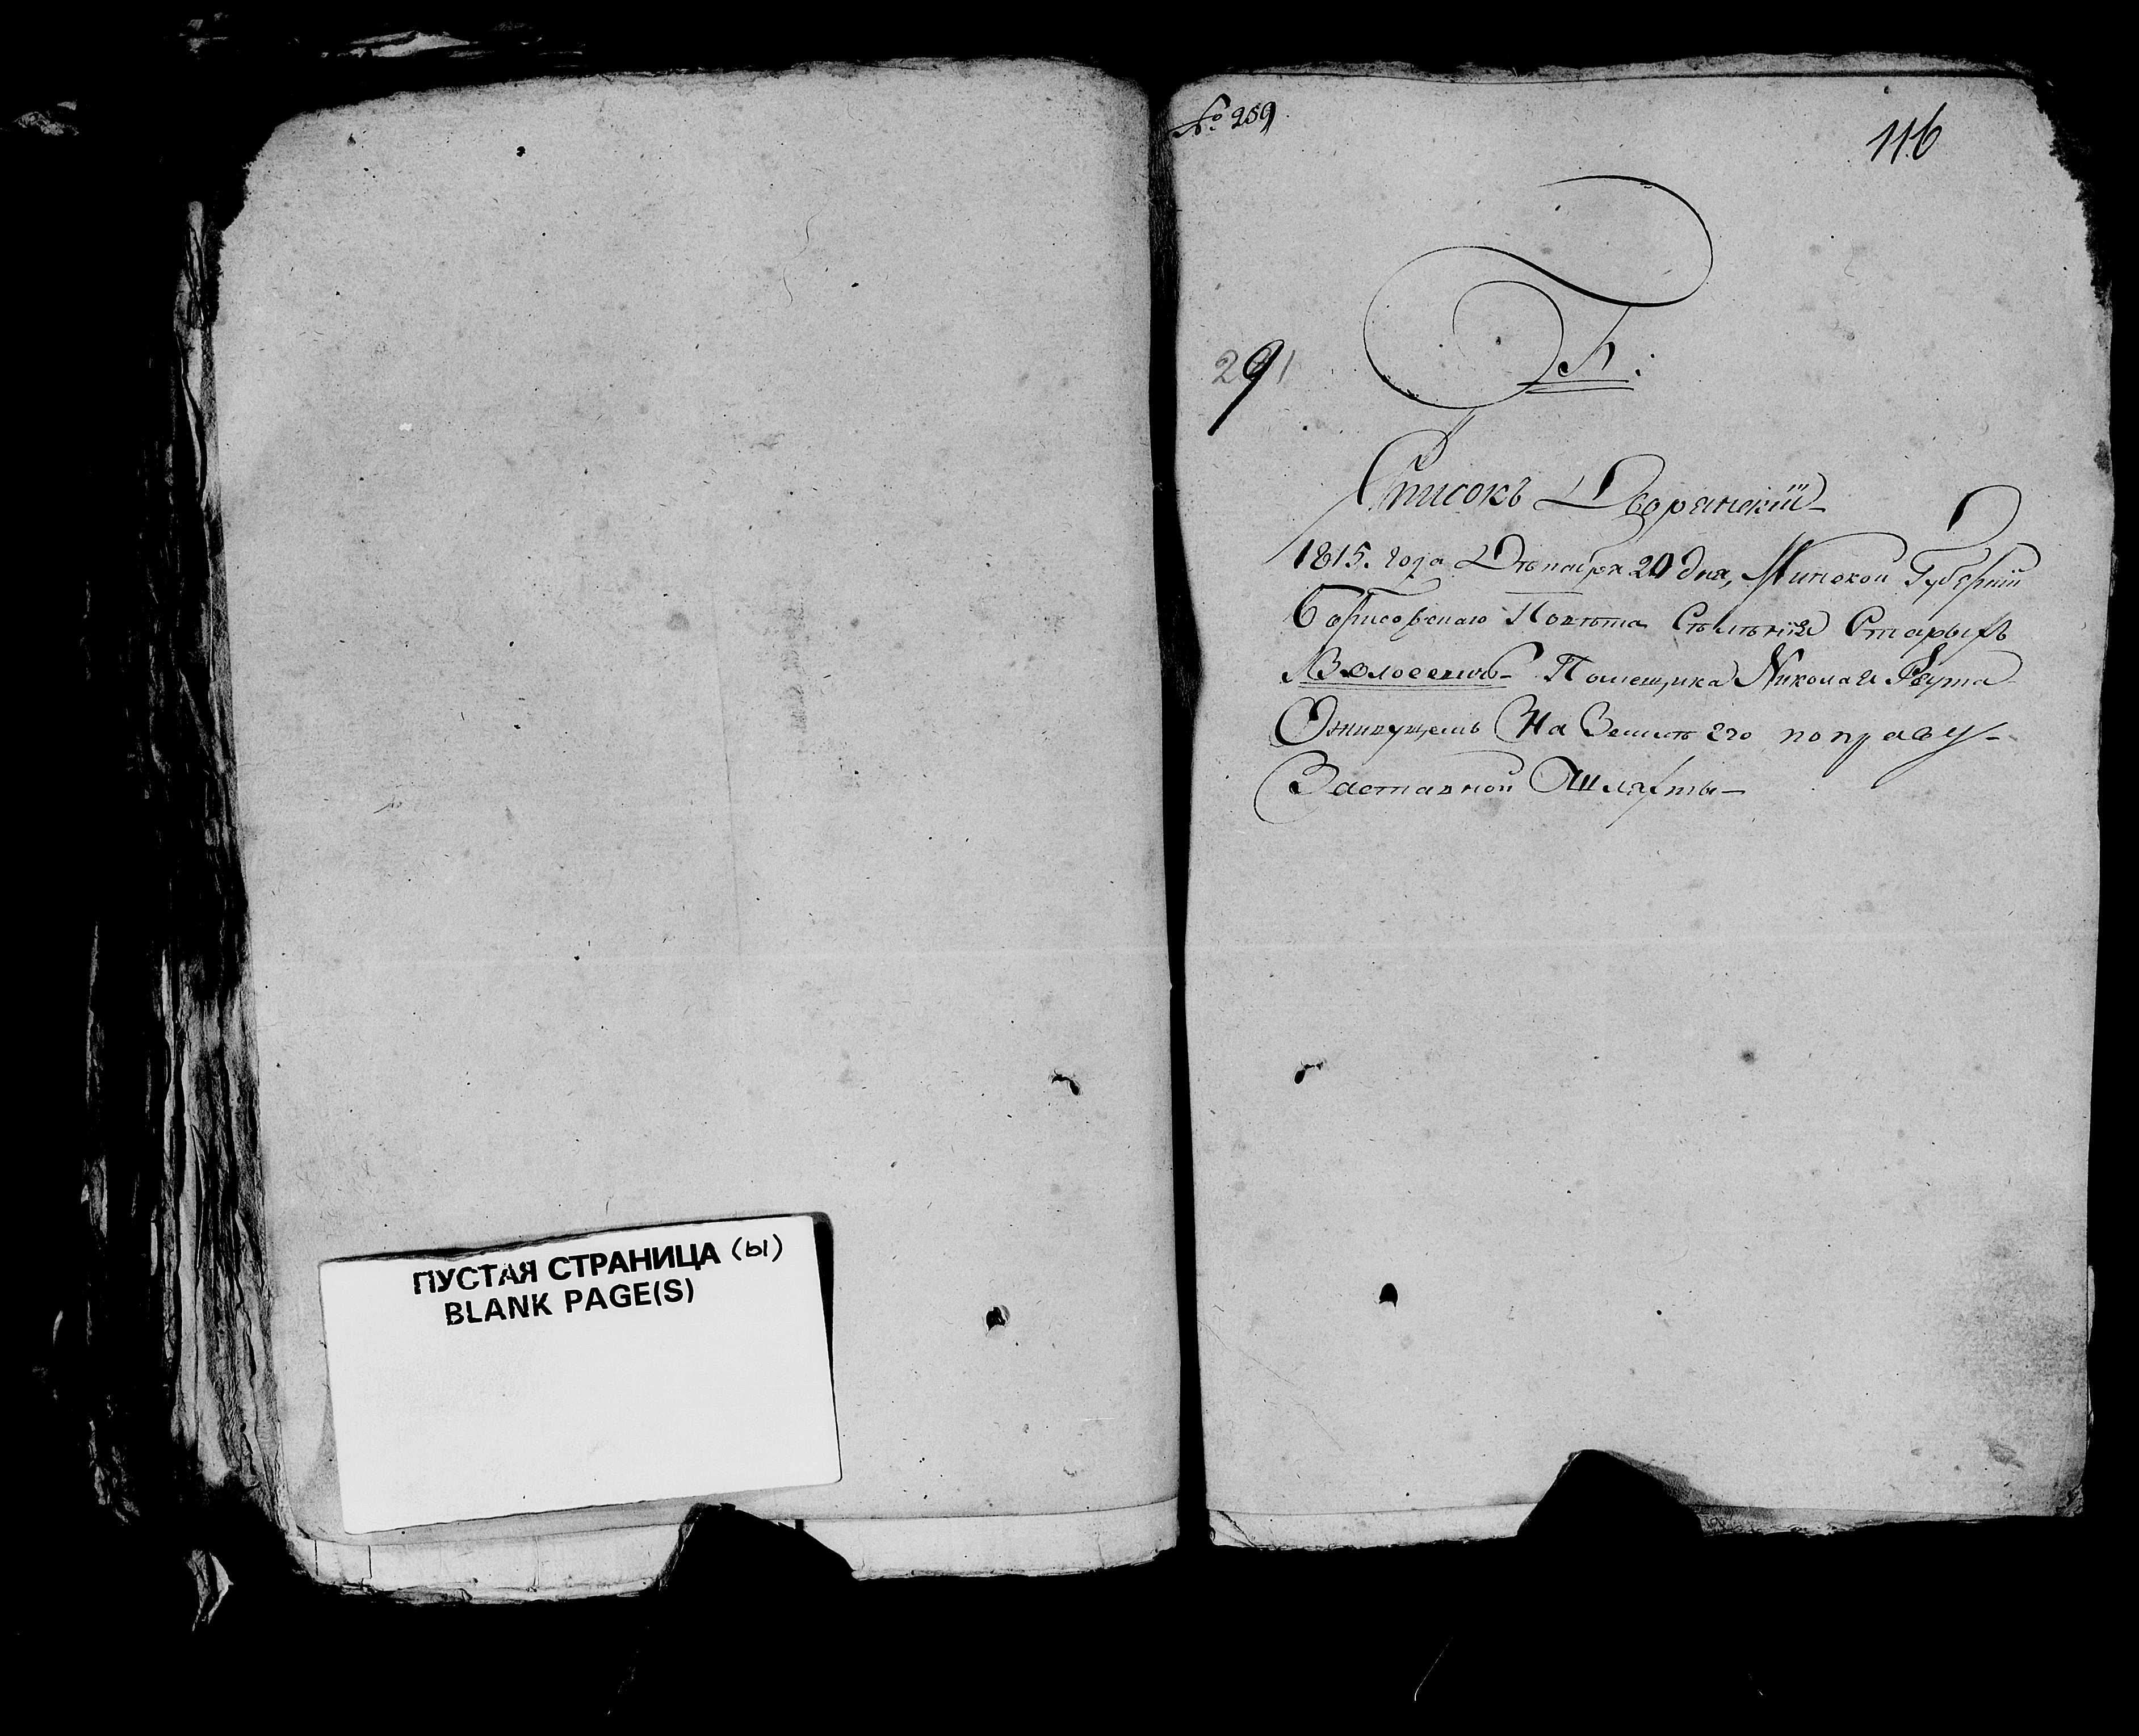 ПУСТАЯ СТРАНИЦА (ы)
BLANK PAGE(S)
№ 259
116
291
Списокъ Дворянскій
1815. года Декабря 20 дня, Минской Губерніи
Борисовскаго Повѣта Сѣлѣнія Старыхъ
Помещика Николая
На Землѣ его по праву
Заставной Шляхты